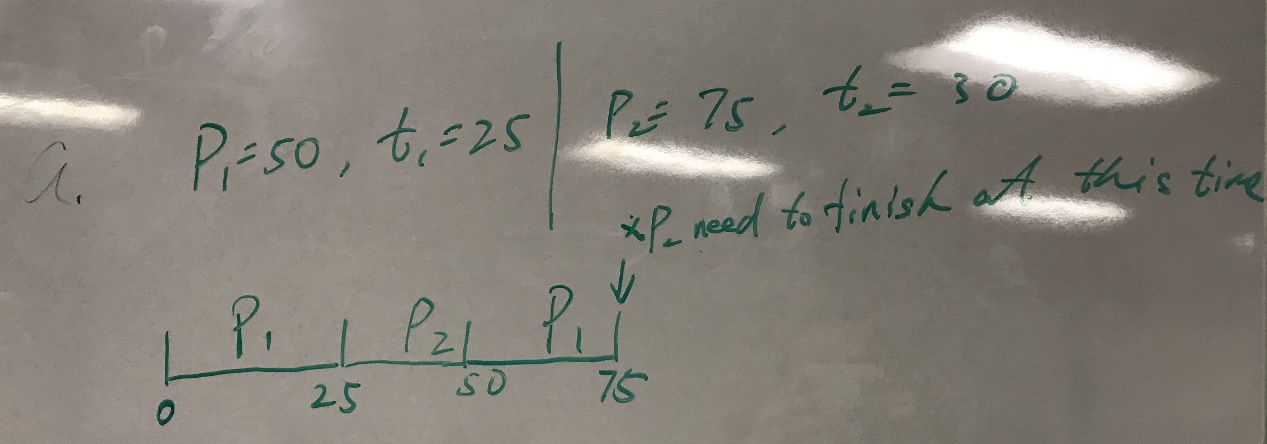 a. P₁=50, t₁=25 | P₂=75, t₂=30
*P₂ need to finish at this time
↓
P₁ P₂ P₁
0 25 50 75